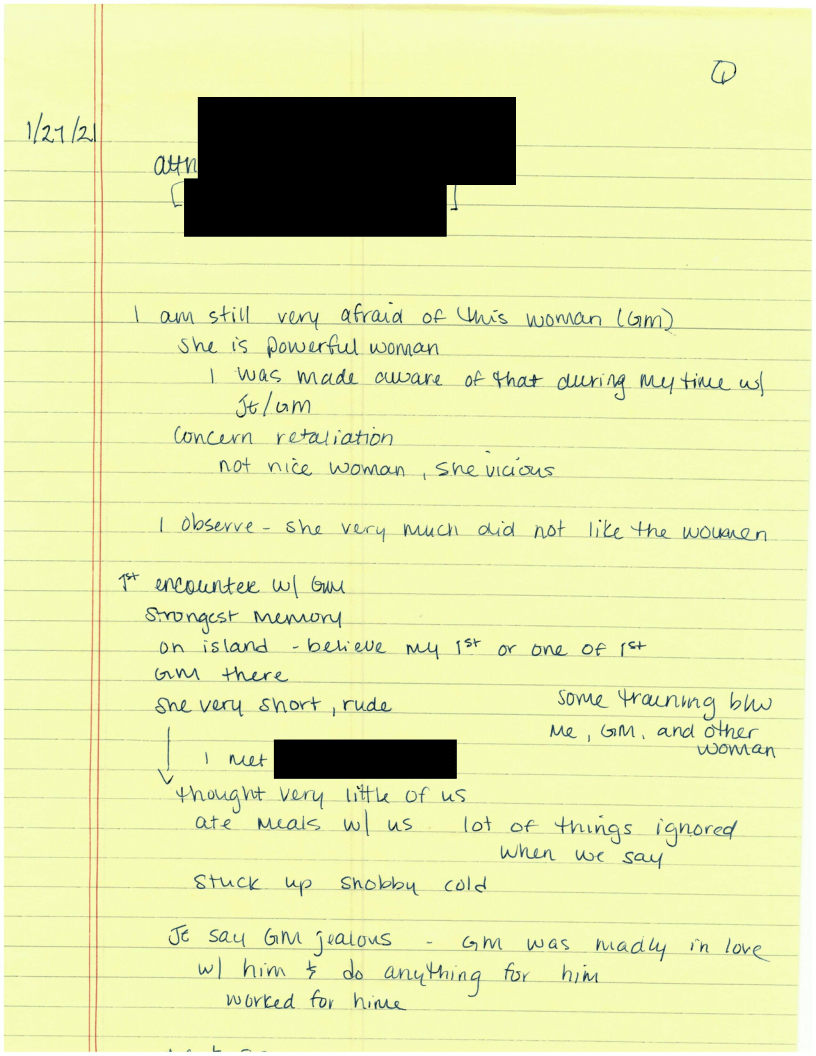 1
1/27/21
attn
[ ]
I am still very afraid of this woman (GM)
She is powerful woman
I was made aware of that during my time w/
JE/GM
Concern retaliation
not nice woman, she vicious
I observe - she very much did not like the women
1st encounter w/ GM
Strongest memory
on island - believe my 1st or one of 1st
GM there
She very short, rude
some training btw
me, GM, and other
woman
I met
thought very little of us
ate meals w/ us lot of things ignored
when we say
Stuck up snobby cold
JE say GM jealous - GM was madly in love
w/ him & do anything for him
worked for hime